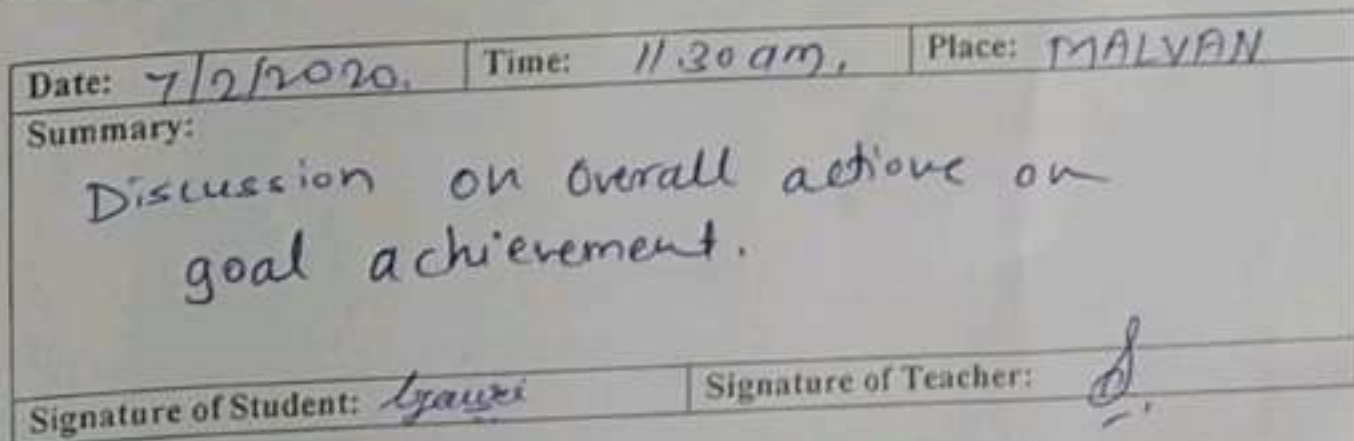 Date: 7/2/2020. Time: 11.30 am. Place: MALVAN
Summary:
Discussion on overall actione on
goal achievement.
Signature of Student: Gauri Signature of Teacher: